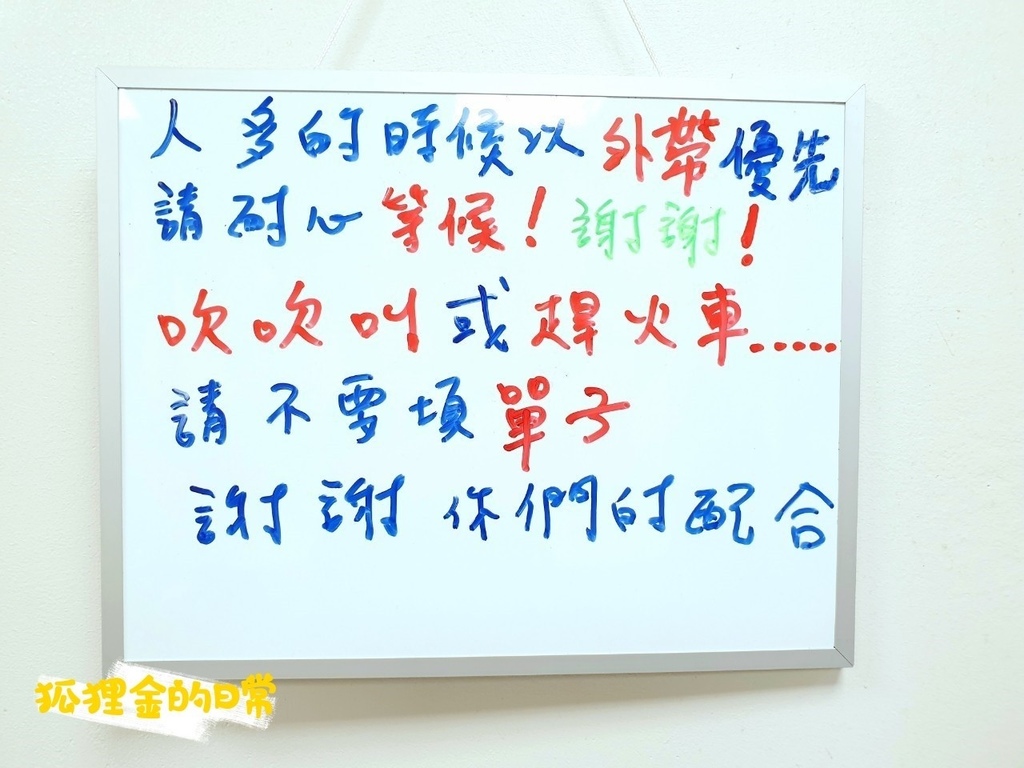 人多的時候以外帶優先
請耐心等候！謝謝！
吹吹叫或趕火車.....
請不要填單子
謝謝你們的配合
狐狸金的日常